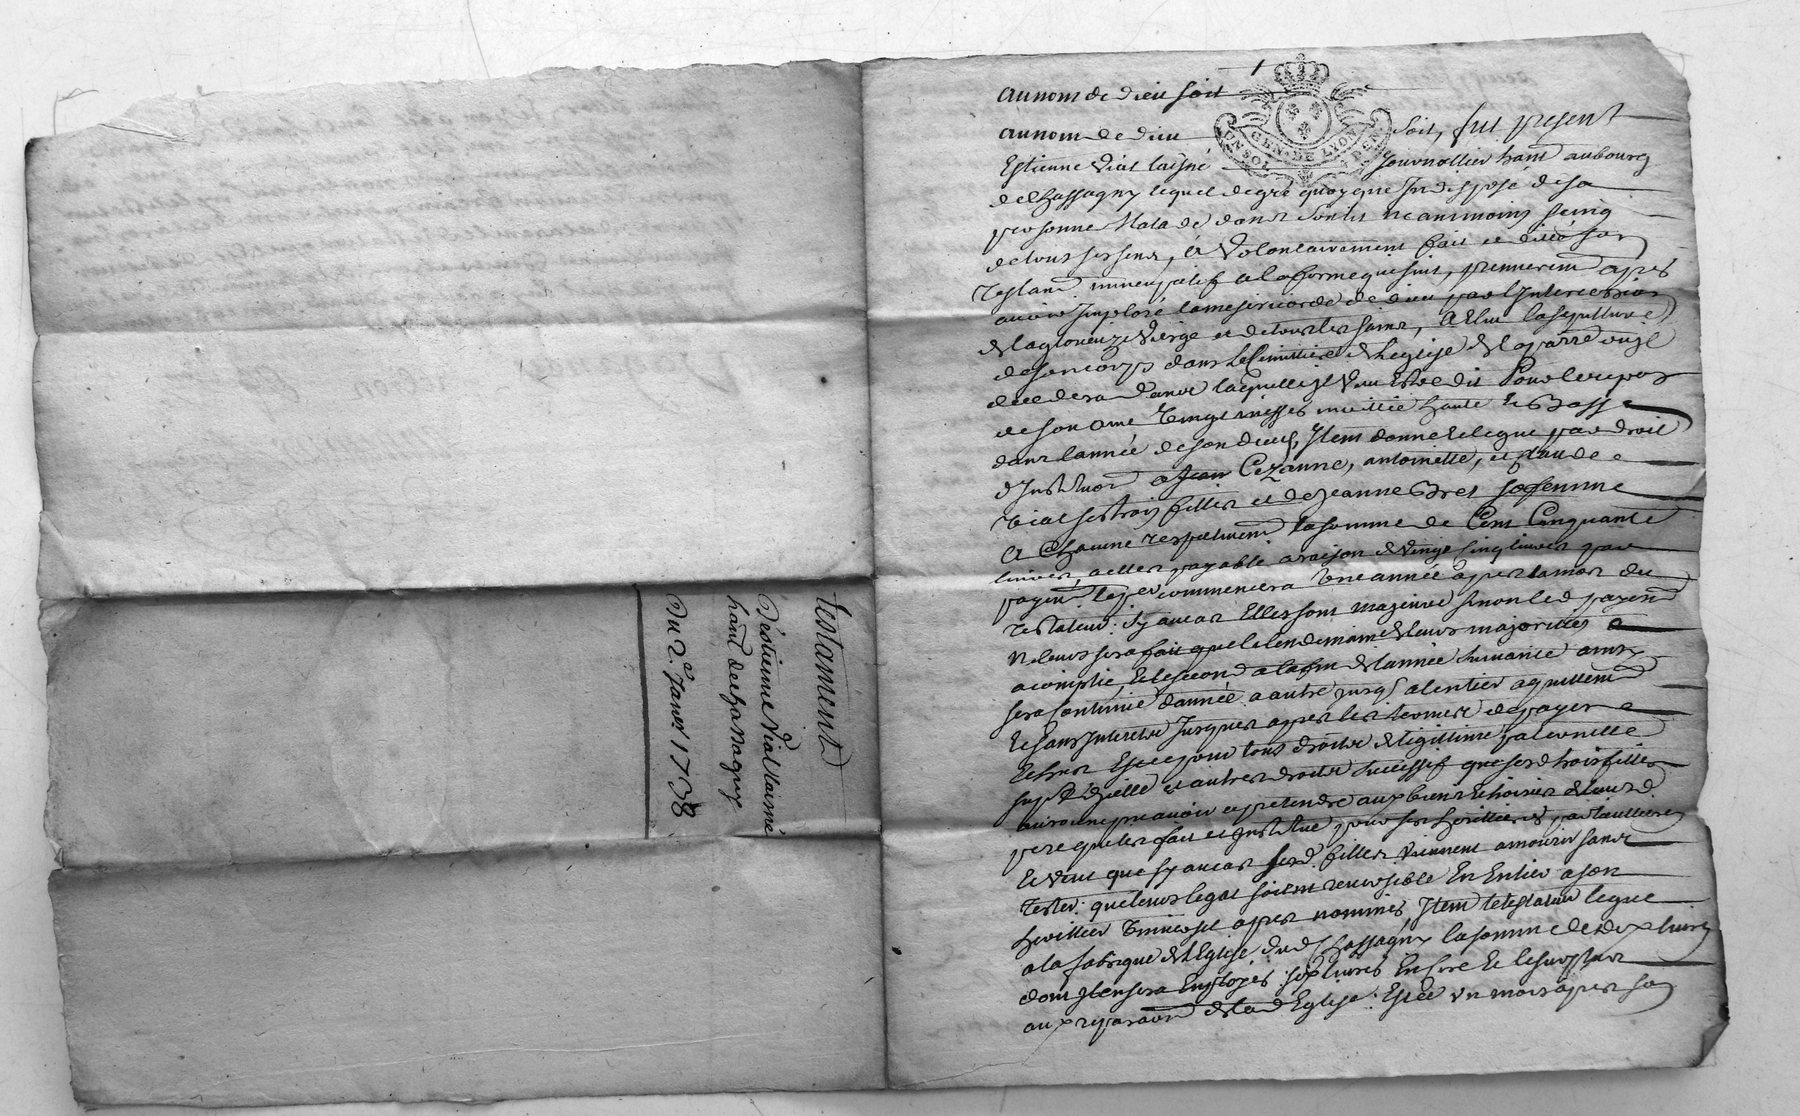 testament
d'éstienne Vial laisné
hant de chassagny
Du 2e Janer 1738
1
Au nom de dieu soit
GEN. DE LYON
UN SOL
DEN
Au nom de dieu soit, fut present
Estienne Vial laisné Journallier hant au bourg
de chassagny lequel de gré quoyque Indisposé de sa
personne Malade dans son lit neanmoins
de tous ses sens, a Volontairement fait et son
Testamt nuncupatif a la forme qui suit, premierem apres
avoir Imploré la misericorde de dieu par l'Intercession
de la glorieuze Vierge et de tous les saints, a Elu la sepulture
de son corps dans le Cimittiere de l'eglize de la parroisse ou il
decedera dans laquelle il veut Estre dit Pour le repos
de son ame Vingt messes moitié haute et Basse
dans l'année de son deces, Item donne et legue par droit
d'Institution a Jean Cezanne, antoinette, et Claude
Vial ses trois filles et de Jeanne Bret sa femme
a Chacune respectivemt la somme de Cent Cinquante
livres a elles payable a raison de Vingt Cinq livres par
payemt le 1er commencera Une année apres la mort du
testateur sy au cas Elles sont majeures sinon led payemt
ne leurs sera fait que le lendemain de leurs majorittés
acomplie, et le second a la fin de l'année suivante ainsy
sera Continué d'année a autre jusqs a l'entier aquittemt
et sans Interetse Jusques apres les termes de payer
Et ce pour tous droits de legittime paternelle
supt d'jcelle et autres droits successif que sesd trois filles
auroient peu avoir et pretendre aux biens et hoirie de leurd
pere qu'il les fait et Institue pour ses herittieres particullieres
Et Veut que sy au cas sesd. filles Viennent a mourir sans
tester que leurs legat soient reversible En Entier a son
herittier Universel apres nommés Item le testateur legue
a la fabrique de l'Eglise dud Chassagny la somme de dix livres
dont Il en sera Employés six livres En Cire et le surplus
aux reparaons de lad Eglise. Et ce Un mois apres sa